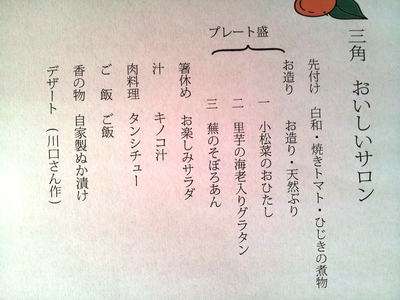 三角　おいしいサロン
先付け　白和・焼きトマト・ひじきの煮物
お造り　お造り・天然ぶり
プレート盛
一　小松菜のおひたし
二　里芋の海老入りグラタン
三　蕪のそぼろあん
箸休め　お楽しみサラダ
汁　キノコ汁
肉料理　タンシチュー
ご　飯　ご飯
香の物　自家製ぬか漬け
デザート　(川口さん作)